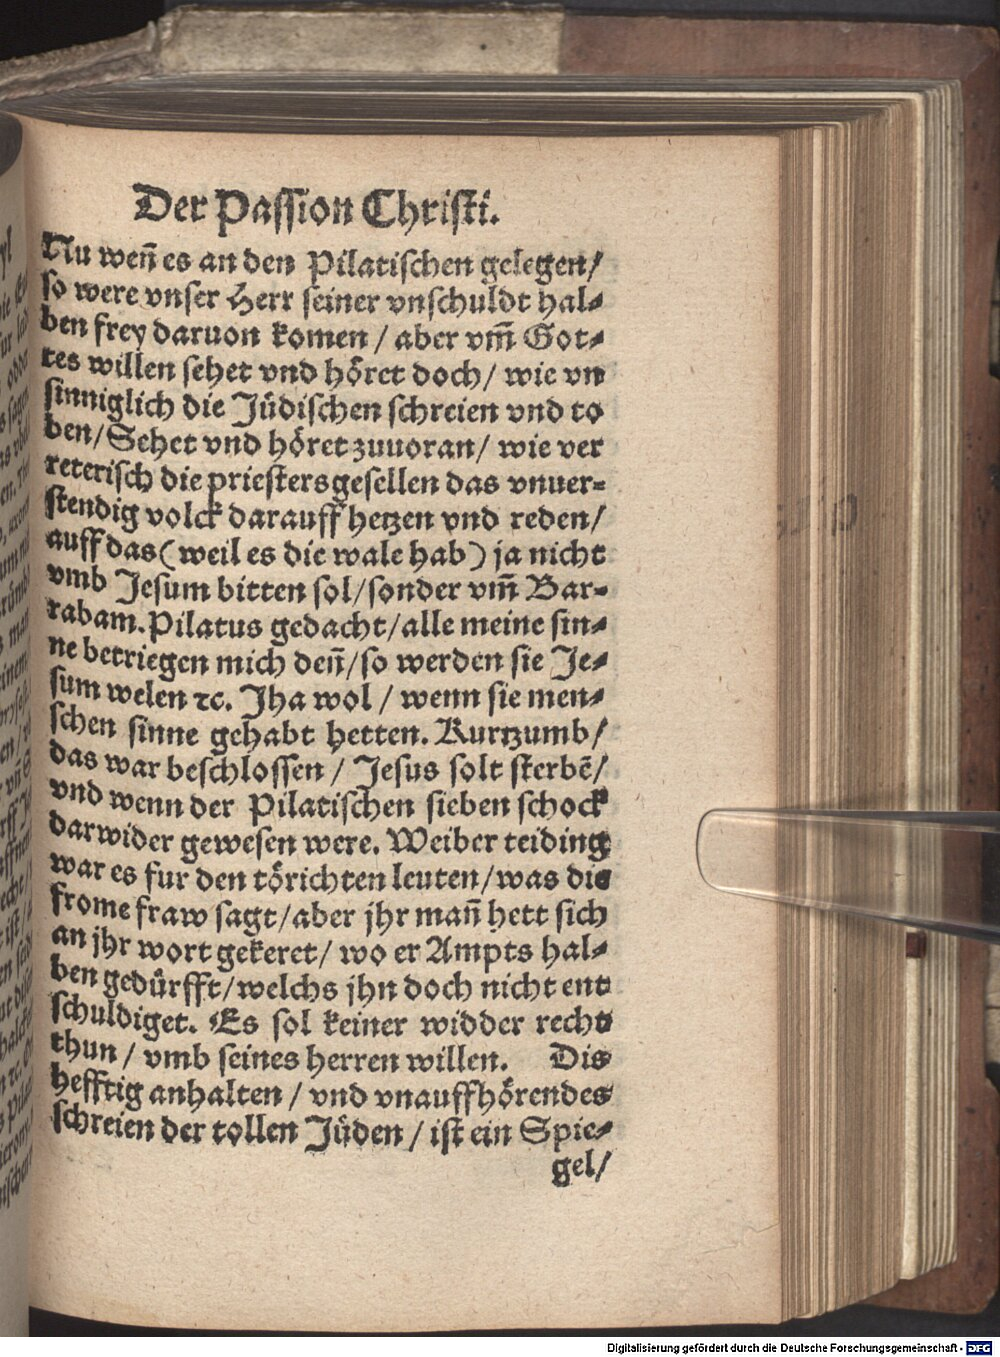 Der Passion Christi.
Nu weñ es an den Pilatischen gelegen/
so were vnser Herr seiner vnschuldt hal-
ben frey daruon komen / aber vm̃ Got-
tes willen sehet vnd höret doch/ wie vn
sinniglich die Jüdischen schreien vnd to
ben/ Sehet vnd höret zuuoran/ wie ver
reterisch die priestersgesellen das vnuer-
stendig volck darauff hetzen vnd reden/
auff das (weil es die wale hab) ja nicht
vmb Jesum bitten sol/ sonder vm̃ Bar-
rabam. Pilatus gedacht/ alle meine sin-
ne betriegen mich deñ/ so werden sie Je-
sum welen ꝛc. Jha wol / wenn sie men-
schen sinne gehabt hetten. Kurtzumb/
das war beschlossen / Jesus solt sterbē/
vnd wenn der Pilatischen sieben schock
darwider gewesen were. Weiber teiding
war es fur den törichten leuten/ was die
frome fraw sagt/ aber jhr mañ hett sich
an jhr wort gekeret/ wo er Ampts hal-
ben gedürfft/ welchs jhn doch nicht ent
schuldiget. Es sol keiner widder recht
thun / vmb seines herren willen. Dis
hefftig anhalten / vnd vnauffhörendes
schreien der tollen Jüden / ist ein Spie-
gel/
Digitalisierung gefördert durch die Deutsche Forschungsgemeinschaft - DFG